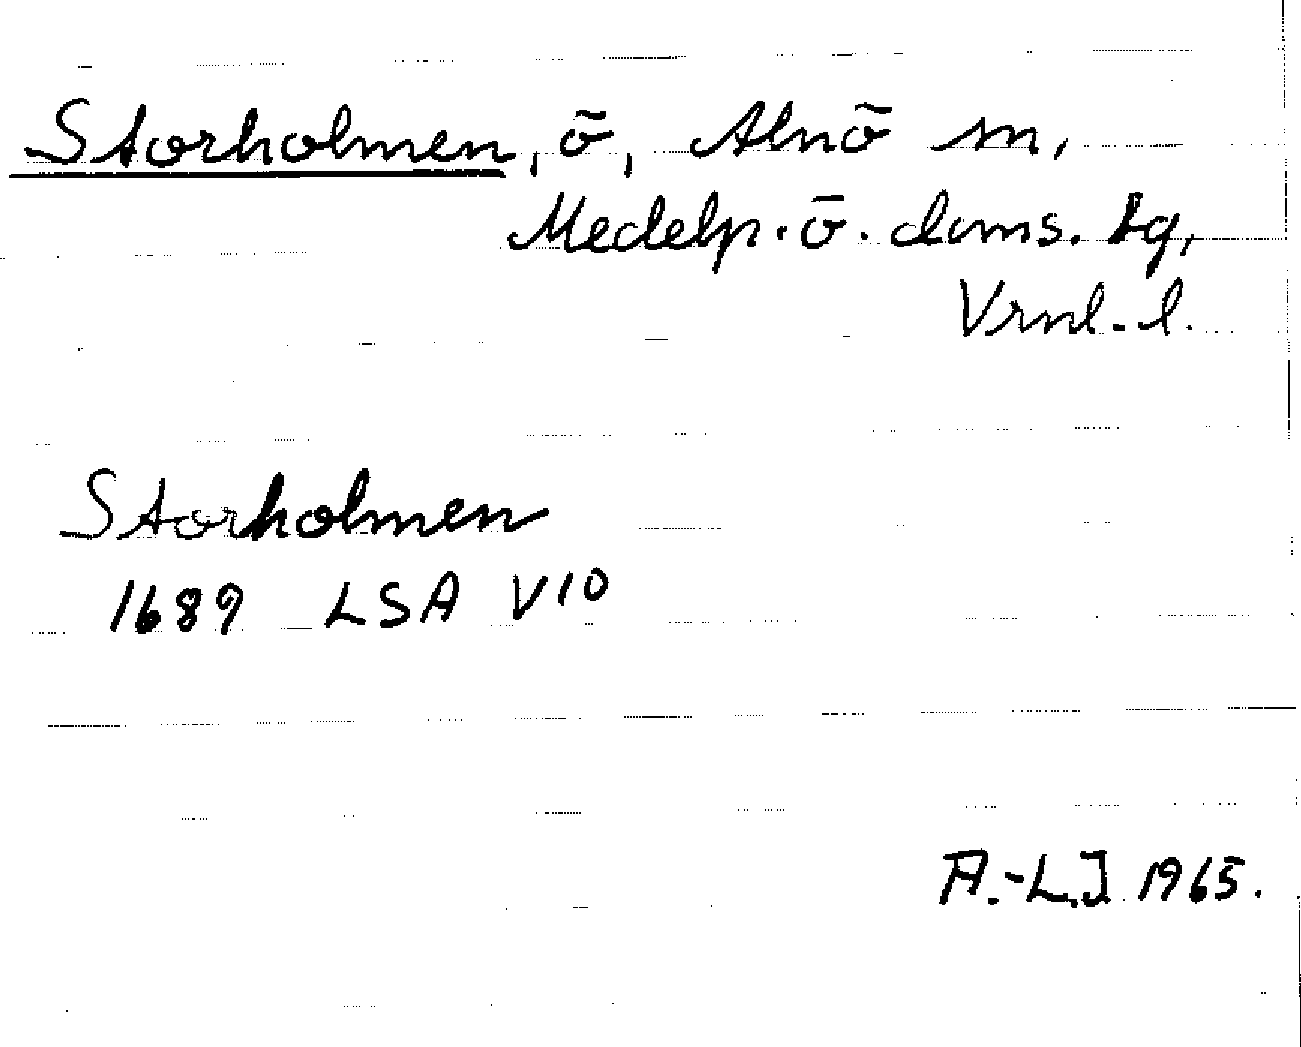 Storholmen, ö, Alnö sn,
Medelp. ö. doms. tg,
Vrnl. l.
Storholmen
1689 LSA V10
A.-L.J. 1965.